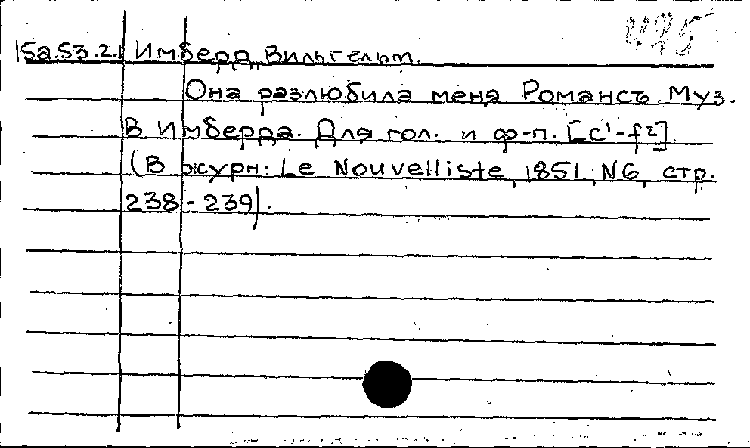 15a.53.2.1 Имберд, Вильгельм.
Она разлюбила меня Романсъ Муз.
В Имберда. Для гол. и ф-п. [c¹-f²]
(В журн: Le Nouvelliste, 1851, N6, стр.
238-239).